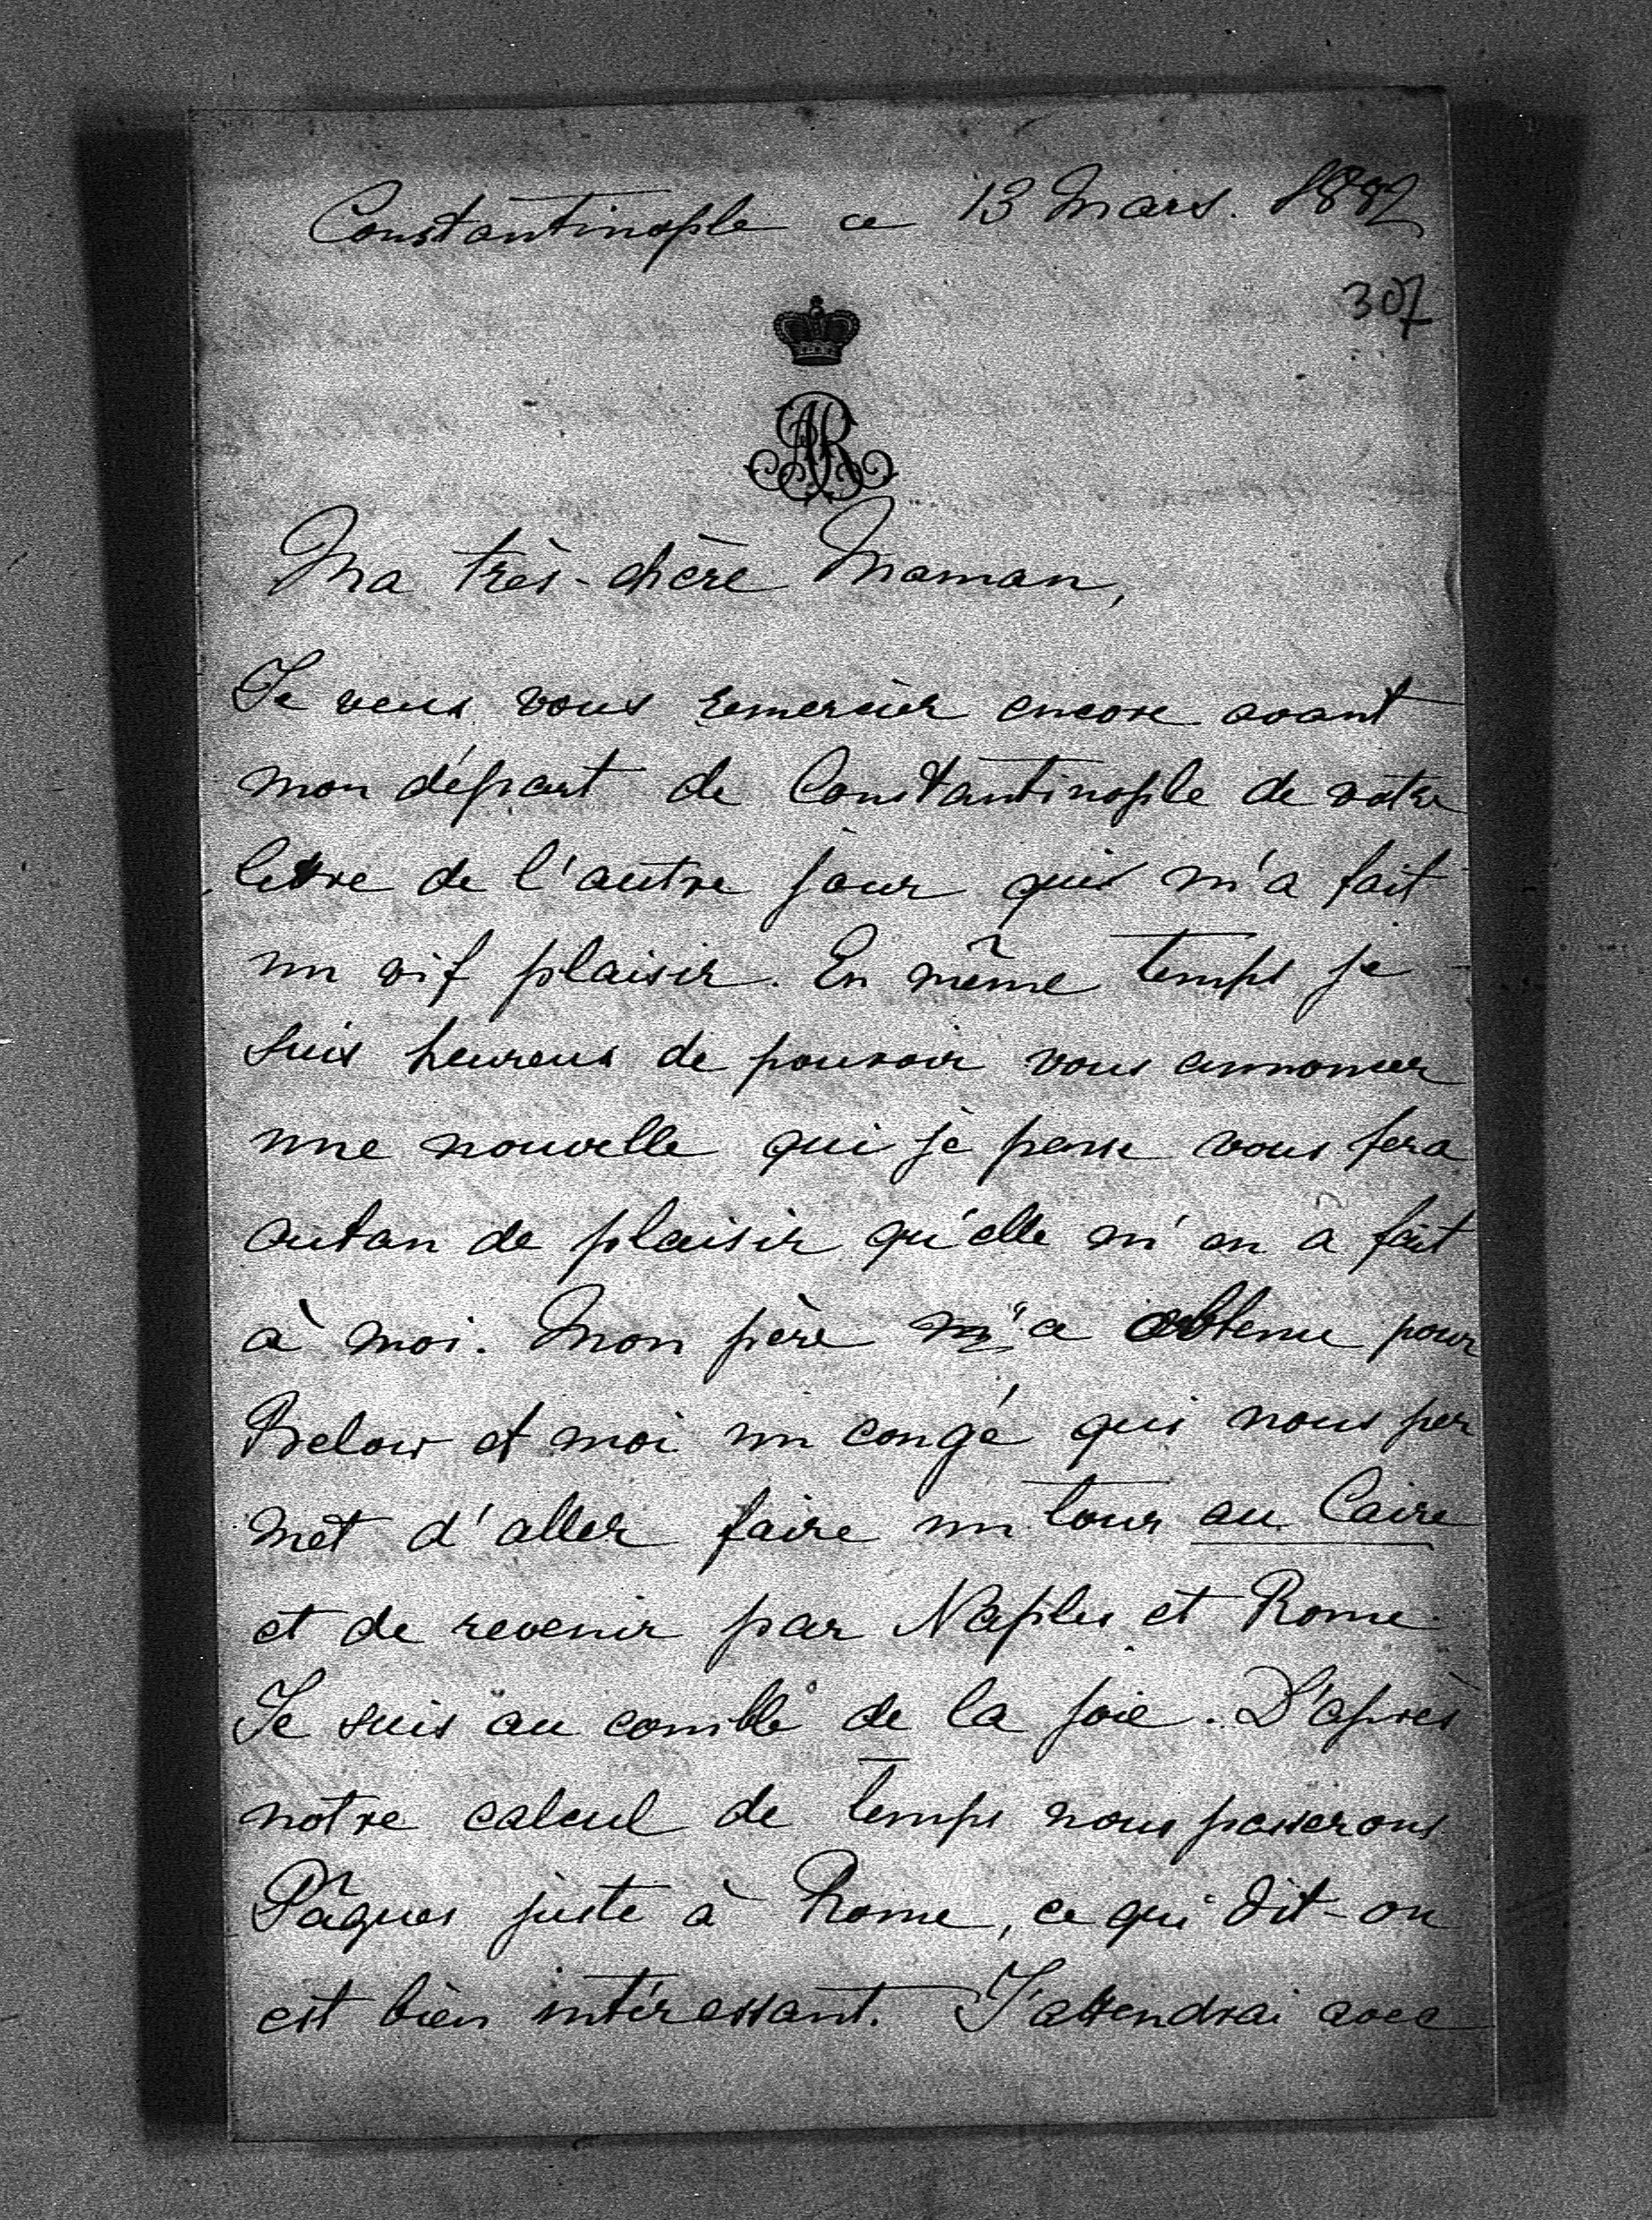 Constantinople ce 13 Mars. 1882
307
AR
Ma très-chère Maman,
Je veux vous remercier encore avant
mon départ de Constantinople de votre
lettre de l'autre jour qui m'a fait
un vif plaisir. En même temps je
suis heureux de pouvoir vous annoncer
une nouvelle qui je pense vous fera
autan de plaisir qu'elle m'en a fait
à moi. Mon père m'a obtenu pour
Below et moi un congé qui nous per
met d'aller faire un tour au Caire
et de revenir par Naples et Rome.
Je suis au comble de la joie. D'après
notre calcul de temps nous passerons
Pâques juste à Rome, ce qui dit-on
est bien intéressant. J'attendrai avec